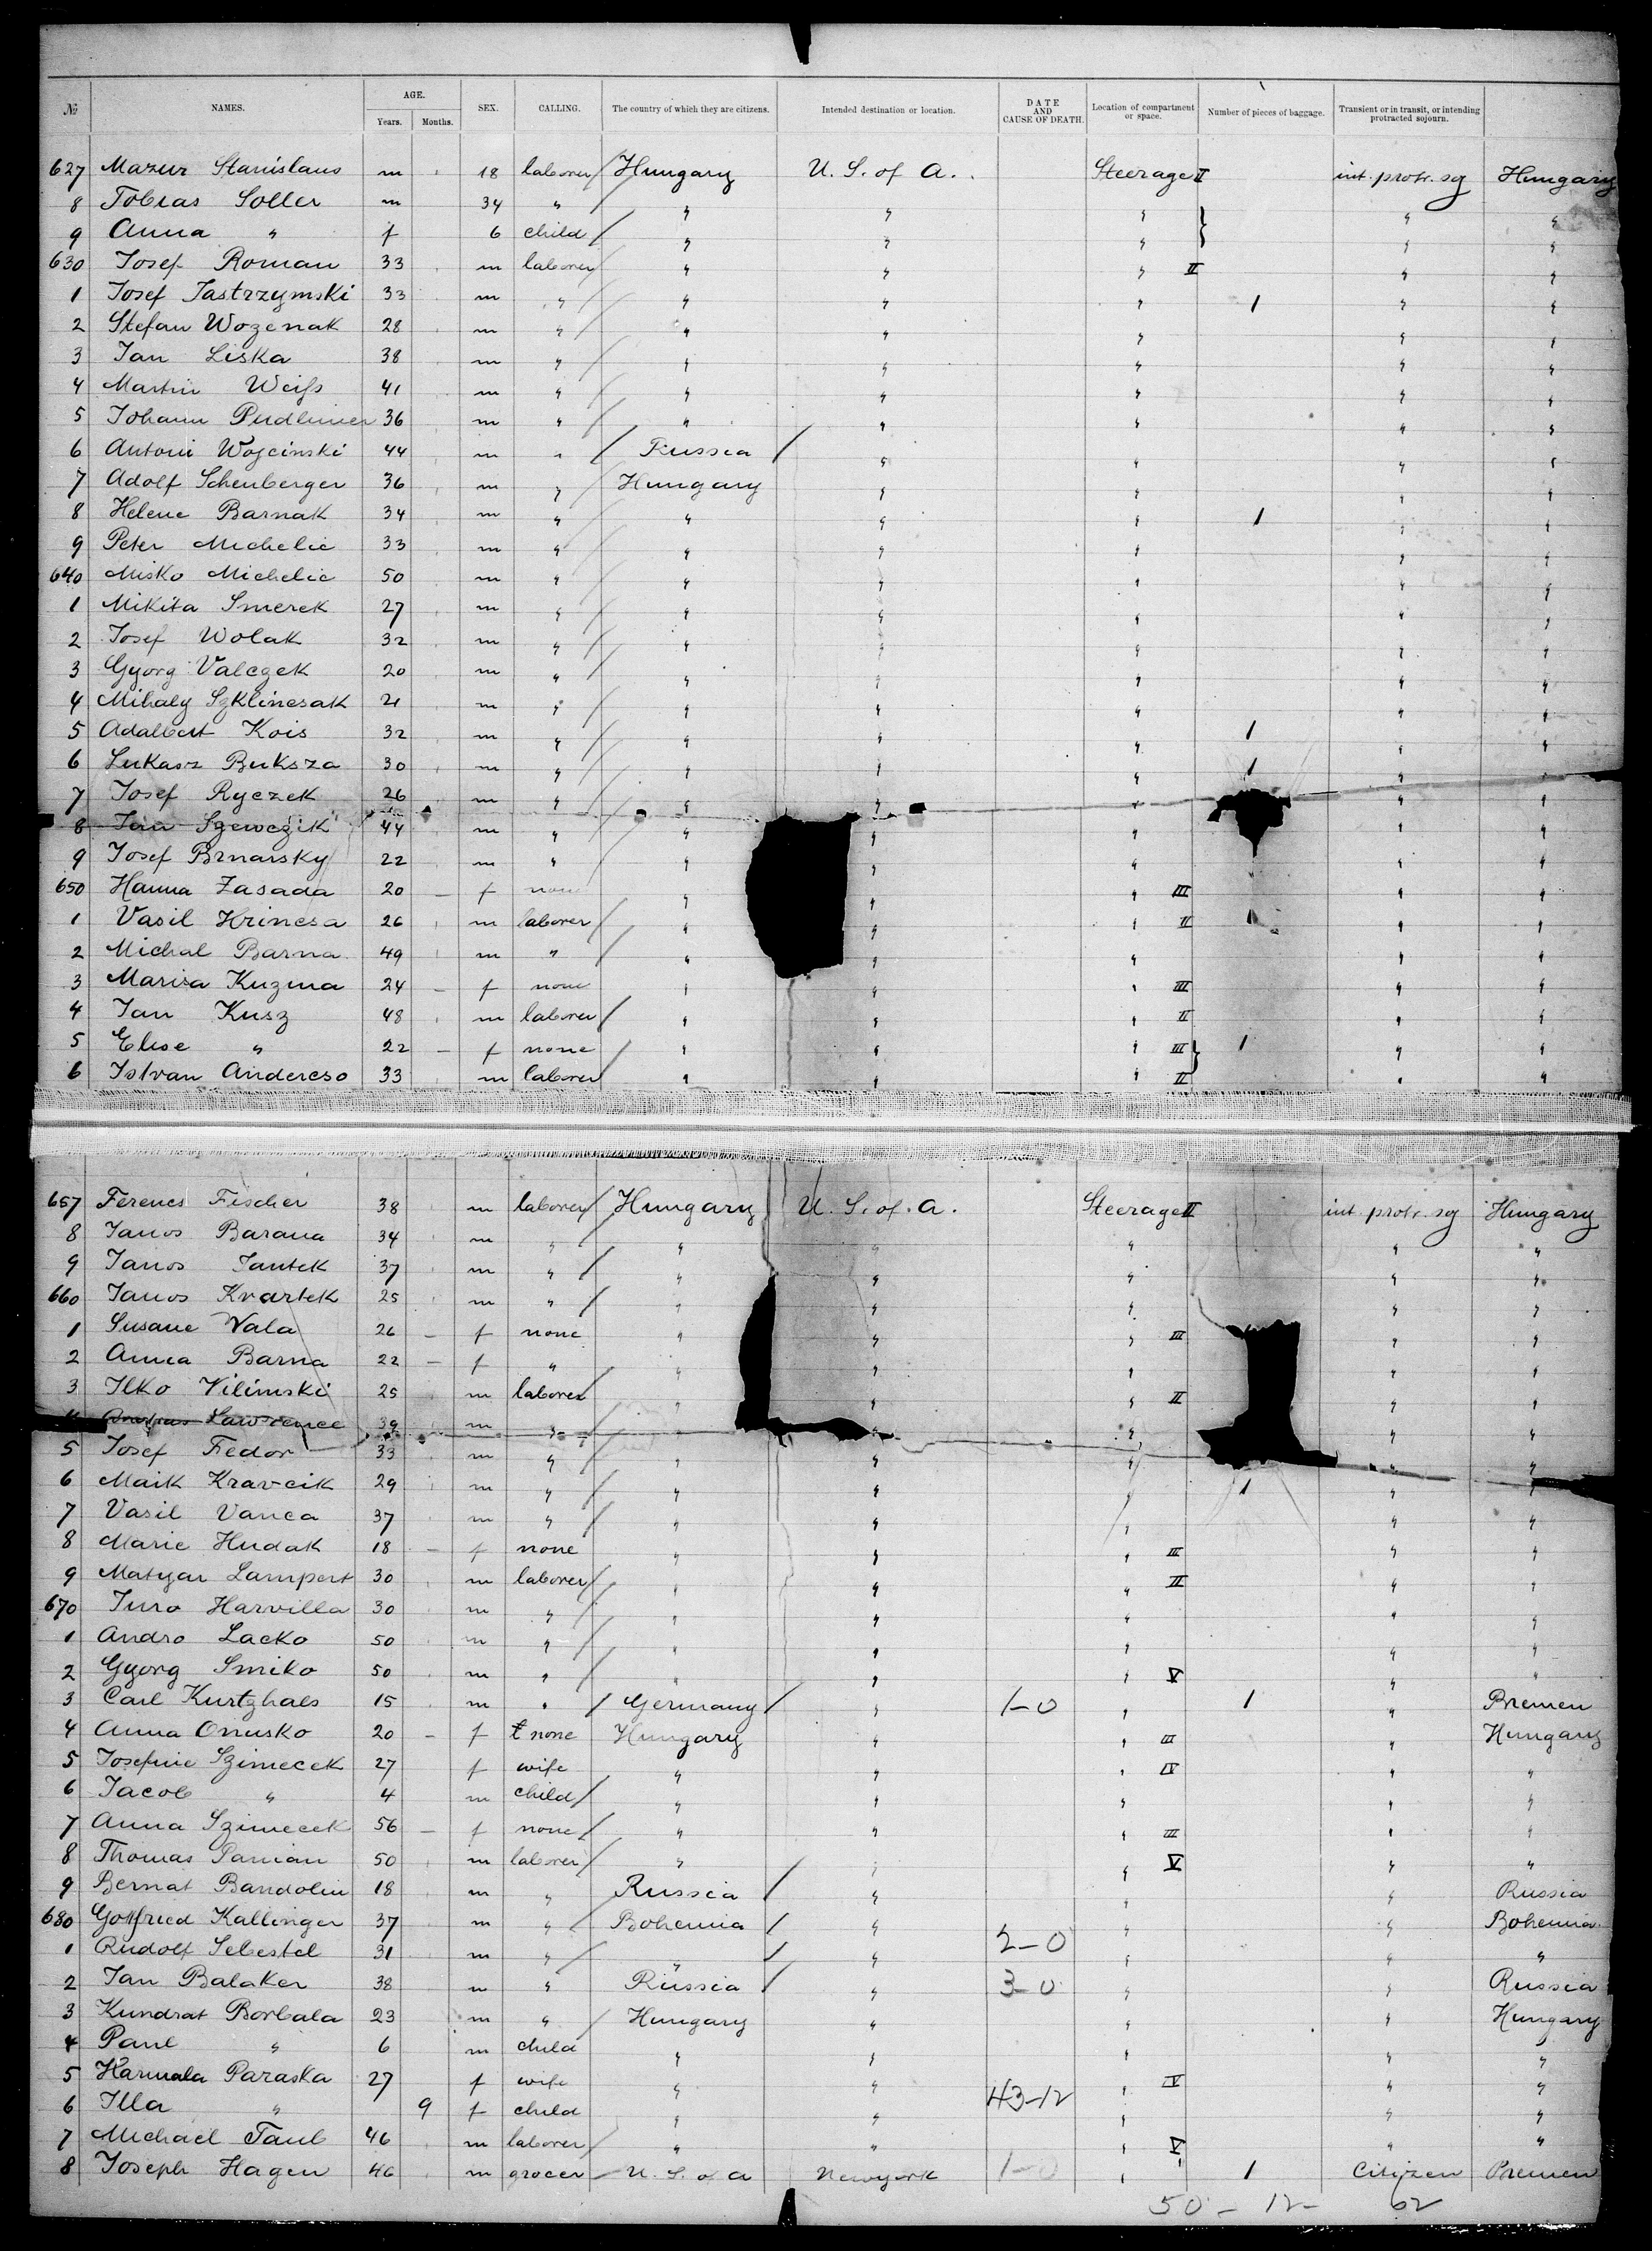 № NAMES. AGE. Years. Months. SEX. CALLING. The country of which they are citizens. Intended destination or location. DATE AND CAUSE OF DEATH. Location of compartment or space. Number of pieces of baggage. Transient or in transit, or intending protracted sojourn.
627 Mazur Stanislaus m 18 laborer Hungary U. S. of A. Steerage II int. protr. sg Hungary
8 Tobias Soller m 34 " " " " " "
9 Anna " f 6 child " " " " "
630 Josef Roman 33 m laborer " " " II " "
1 Josef Jastrzymski 33 m " " " " 1 " "
2 Stefan Wozenak 28 m " " " " " "
3 Jan Liska 38 m " " " " " "
4 Martin Weifs 41 m " " " " " "
5 Johann Pudlimer 36 m " " " " " "
6 Antoni Wojcinski 44 m " Russia " " " "
7 Adolf Schenberger 36 m " Hungary " " " "
8 Helene Barnak 34 m " " " " 1 " "
9 Peter Michelic 33 m " " " " " "
640 Misko Michelic 50 m " " " " " "
1 Mikita Smerek 27 m " " " " " "
2 Josef Wolak 32 m " " " " " "
3 Gyorg Valczek 20 m " " " " " "
4 Mihaly Szklinesak 21 m " " " " " "
5 Adalbert Kois 32 m " " " " 1 " "
6 Lukasz Buksza 30 m " " " " 1 " "
7 Josef Ryczek 26 m " " " " " "
8 Jan Szewczik 44 m " " " " " "
9 Josef Brnarsky 22 m " " " " " "
650 Hanna Zasada 20 — f none " " " III " "
1 Vasil Hrincsa 26 m laborer " " " II 1 " "
2 Michal Barna 49 m " " " " " "
3 Marisa Kuzma 24 — f none " " " III " "
4 Jan Kusz 48 m laborer " " " II " "
5 Elise " 22 — f none " " " III 1 " "
6 Istvan Andercso 33 m laborer " " " II " "
657 Ferencs Fischer 38 m laborer Hungary U. S. of. A. Steerage II int. protr. sg Hungary
8 Janos Barana 34 m " " " " " "
9 Janos Jantek 37 m " " " " " "
660 Janos Kvartek 25 m " " " " " "
1 Susane Vala 26 — f none " " " III " "
2 Anna Barna 22 — f " " " " " "
3 Ilko Vilimski 25 m laborer " " " II " "
Andras Lawrence 39 m " " " " " "
5 Josef Fedor 33 m " " " " " "
6 Maik Kravcik 29 m " " " " 1 " "
7 Vasil Vanca 37 m " " " " " "
8 Marie Hudak 18 — f none " " " III " "
9 Matyar Lampert 30 m laborer " " " II " "
670 Juro Harvilla 30 m " " " " " "
1 Andro Lacko 50 m " " " " " "
2 Gyorg Smiko 50 m " " " " V " "
3 Carl Kurtzhals 15 m " Germany " 1-0 " 1 " Bremen
4 Anna Onusko 20 — f none Hungary " " III " Hungary
5 Josefine Szimecek 27 f wife " " " IV " "
6 Jacob " 4 m child " " " " "
7 Anna Szimecek 56 — f none " " " III " "
8 Thomas Panian 50 m laborer " " " V " "
9 Bernat Bandolin 18 m " Russia " " " Russia
680 Gottfried Kallinger 37 m " Bohemia " " " Bohemia
1 Rudolf Sebestel 31 m " " " 2-0 " " "
2 Jan Balaker 38 m " Russia " 3-0 " " Russia
3 Kundrat Borbala 23 m " Hungary " " " Hungary
4 Paul " 6 m child " " " " "
5 Harmala Paraska 27 f wife " " " IV " "
6 Illa " 9 f child " " 43-12 " " "
7 Michael Taub 46 m laborer " " " V " "
8 Joseph Hagen 46 m grocer U. S. of A Newyork 1-0 " 1 Citizen Bremen
50 - 12 - 62